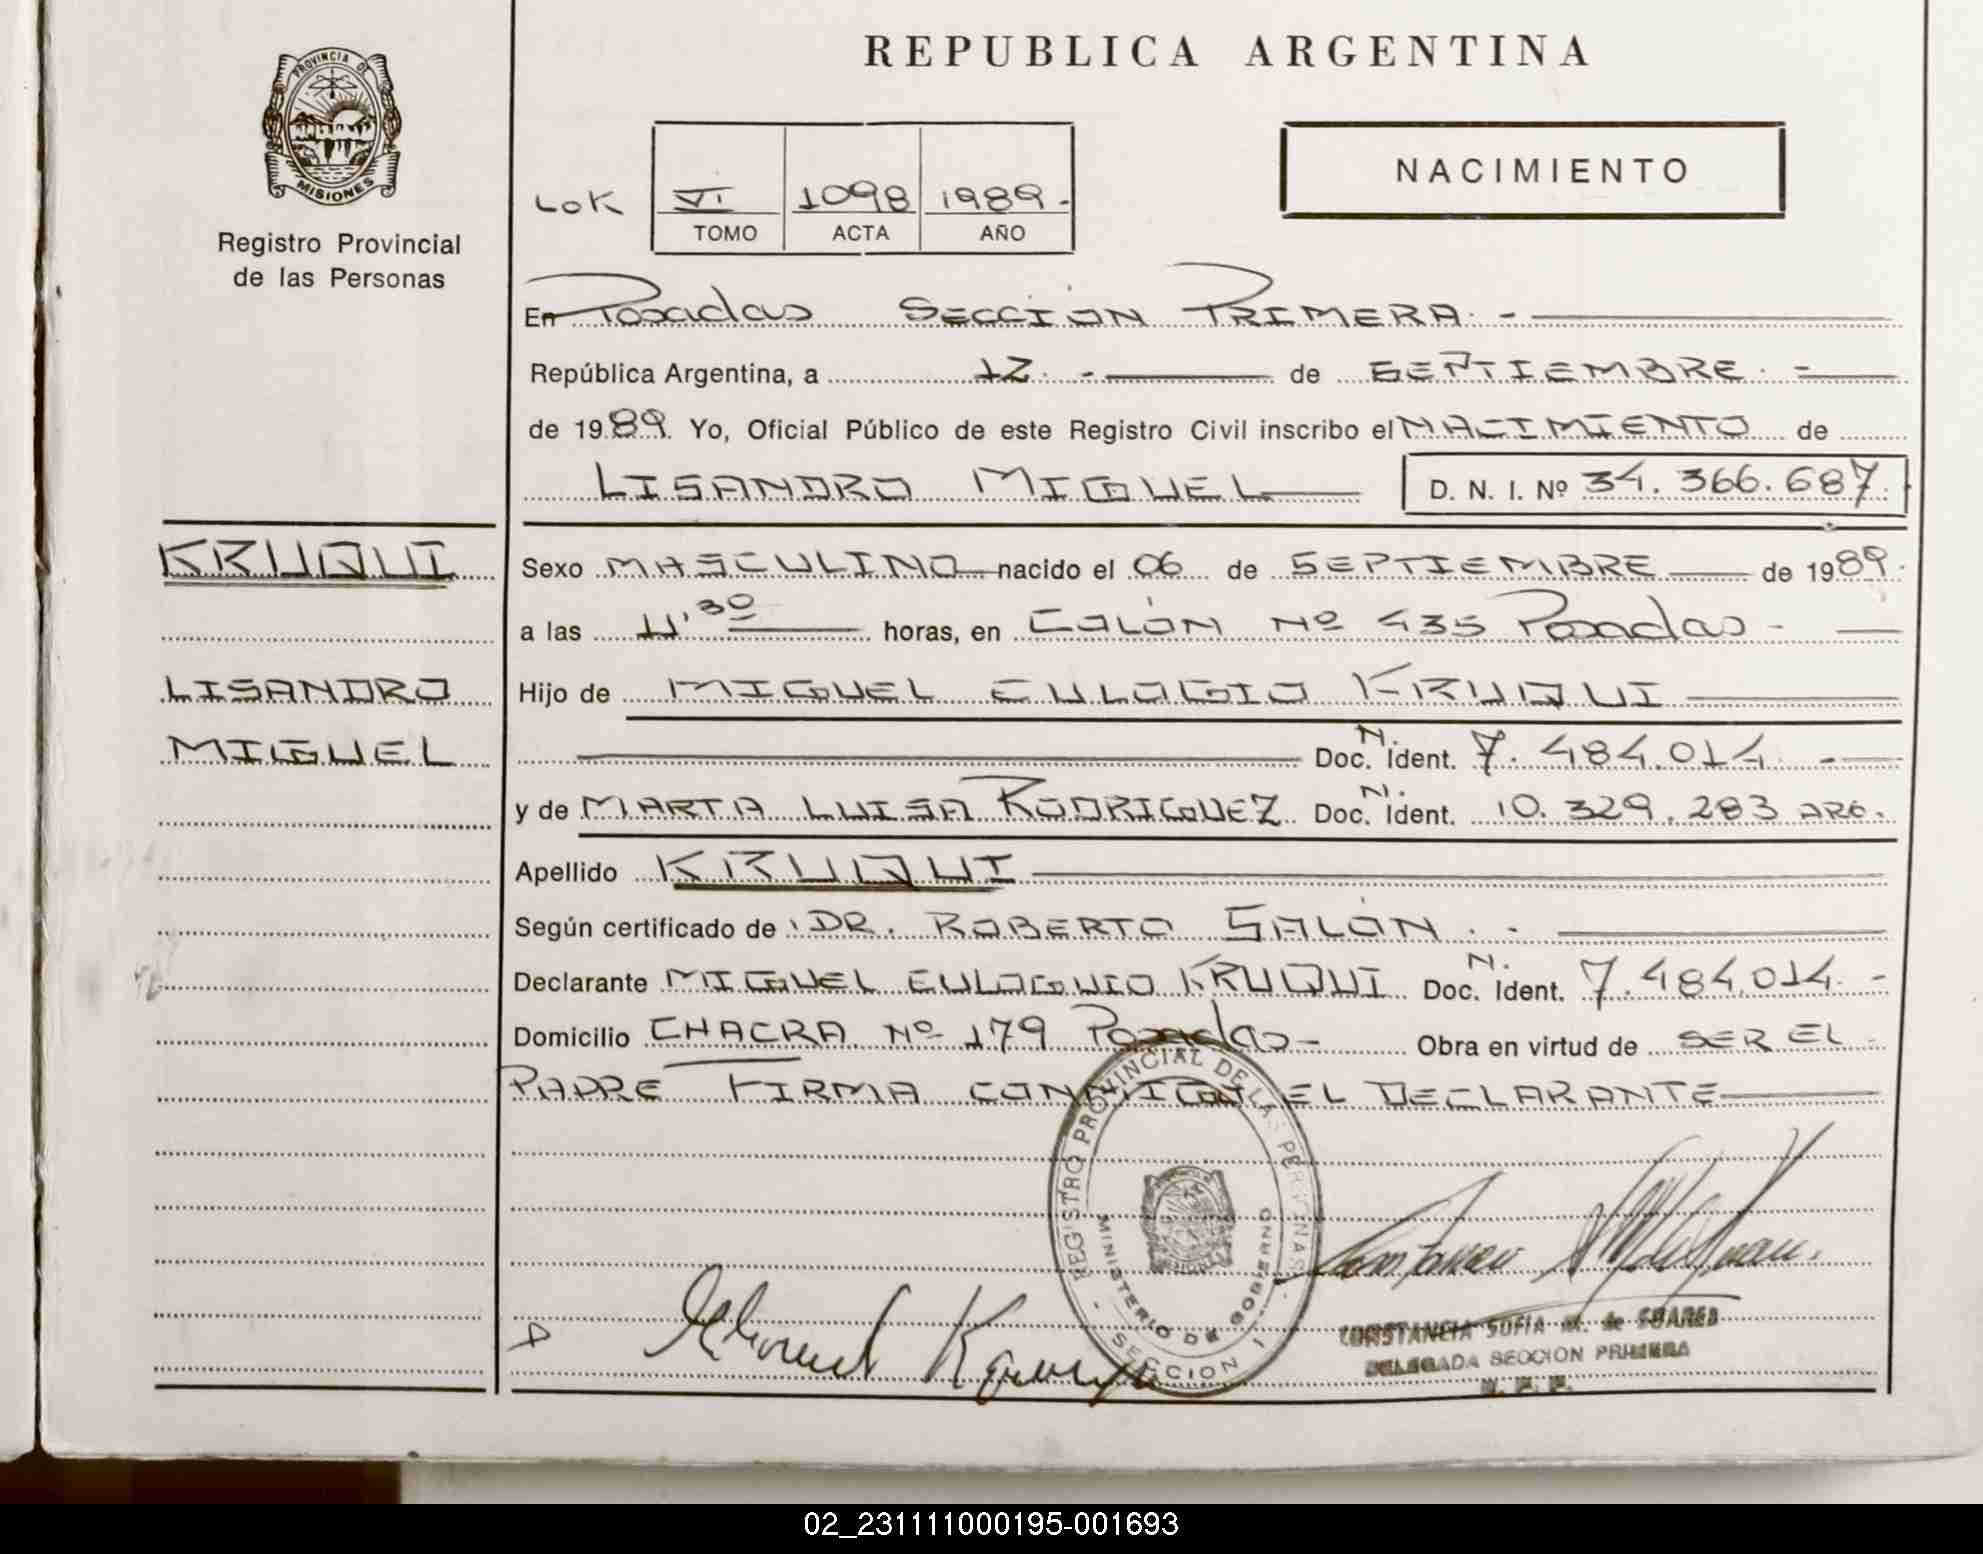 REPUBLICA ARGENTINA
PROVINCIA DE
MISIONES
Registro Provincial
de las Personas
NACIMIENTO
LOK VI 1098 1989.-
TOMO ACTA AÑO
En Posadas SECCIÓN PRIMERA.-
República Argentina, a 12.- de SEPTIEMBRE.-
de 1989. Yo, Oficial Público de este Registro Civil inscribo el NACIMIENTO de
LISANDRO MIGUEL D. N. I. Nº 34.366.687.
KRUQUI
LISANDRO
MIGUEL
Sexo MASCULINO nacido el 06 de SEPTIEMBRE de 1989.
a las 11'30 horas, en COLÓN Nº 435 Posadas-
Hijo de MIGUEL EULOGIO KRUQUI
Doc. N. Ident. 7.484.014.-
y de MARTA LUISA RODRIGUEZ Doc. N. Ident. 10.329.283 ARG.
Apellido KRUQUI
Según certificado de DR. ROBERTO GALÓN.-
Declarante MIGUEL EULOGUIO KRUQUI Doc. N. Ident. 7.484.014.-
Domicilio CHACRA Nº 179 Posadas- Obra en virtud de SER EL
PADRE FIRMA CONMIGO EL DECLARANTE
REGISTRO PROVINCIAL DE LAS PERSONAS
MINISTERIO DE GOBIERNO
SECCION 1
CONSTANCIA SOFIA M. de SUAREZ
DELEGADA SECCION PRIMERA
02_231111000195-001693